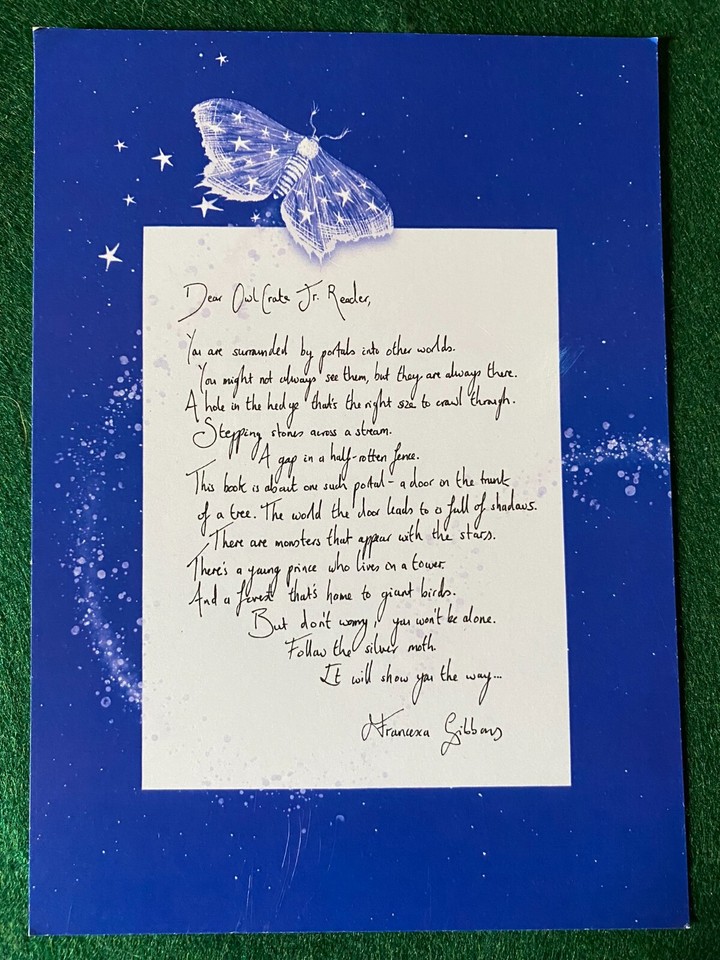 Dear OwlCrate Jr. Reader,
You are surrounded by portals into other worlds.
You might not always see them, but they are always there.
A hole in the hedge that's the right size to crawl through.
Stepping stones across a stream.
A gap in a half-rotten fence.
This book is about one such portal - a door in the trunk
of a tree. The world the door leads to is full of shadows.
There are monsters that appear with the stars.
There's a young prince who lives in a tower.
And a forest that's home to giant birds.
But don't worry, you won't be alone.
Follow the silver moth.
It will show you the way...
Francesca Gibbons